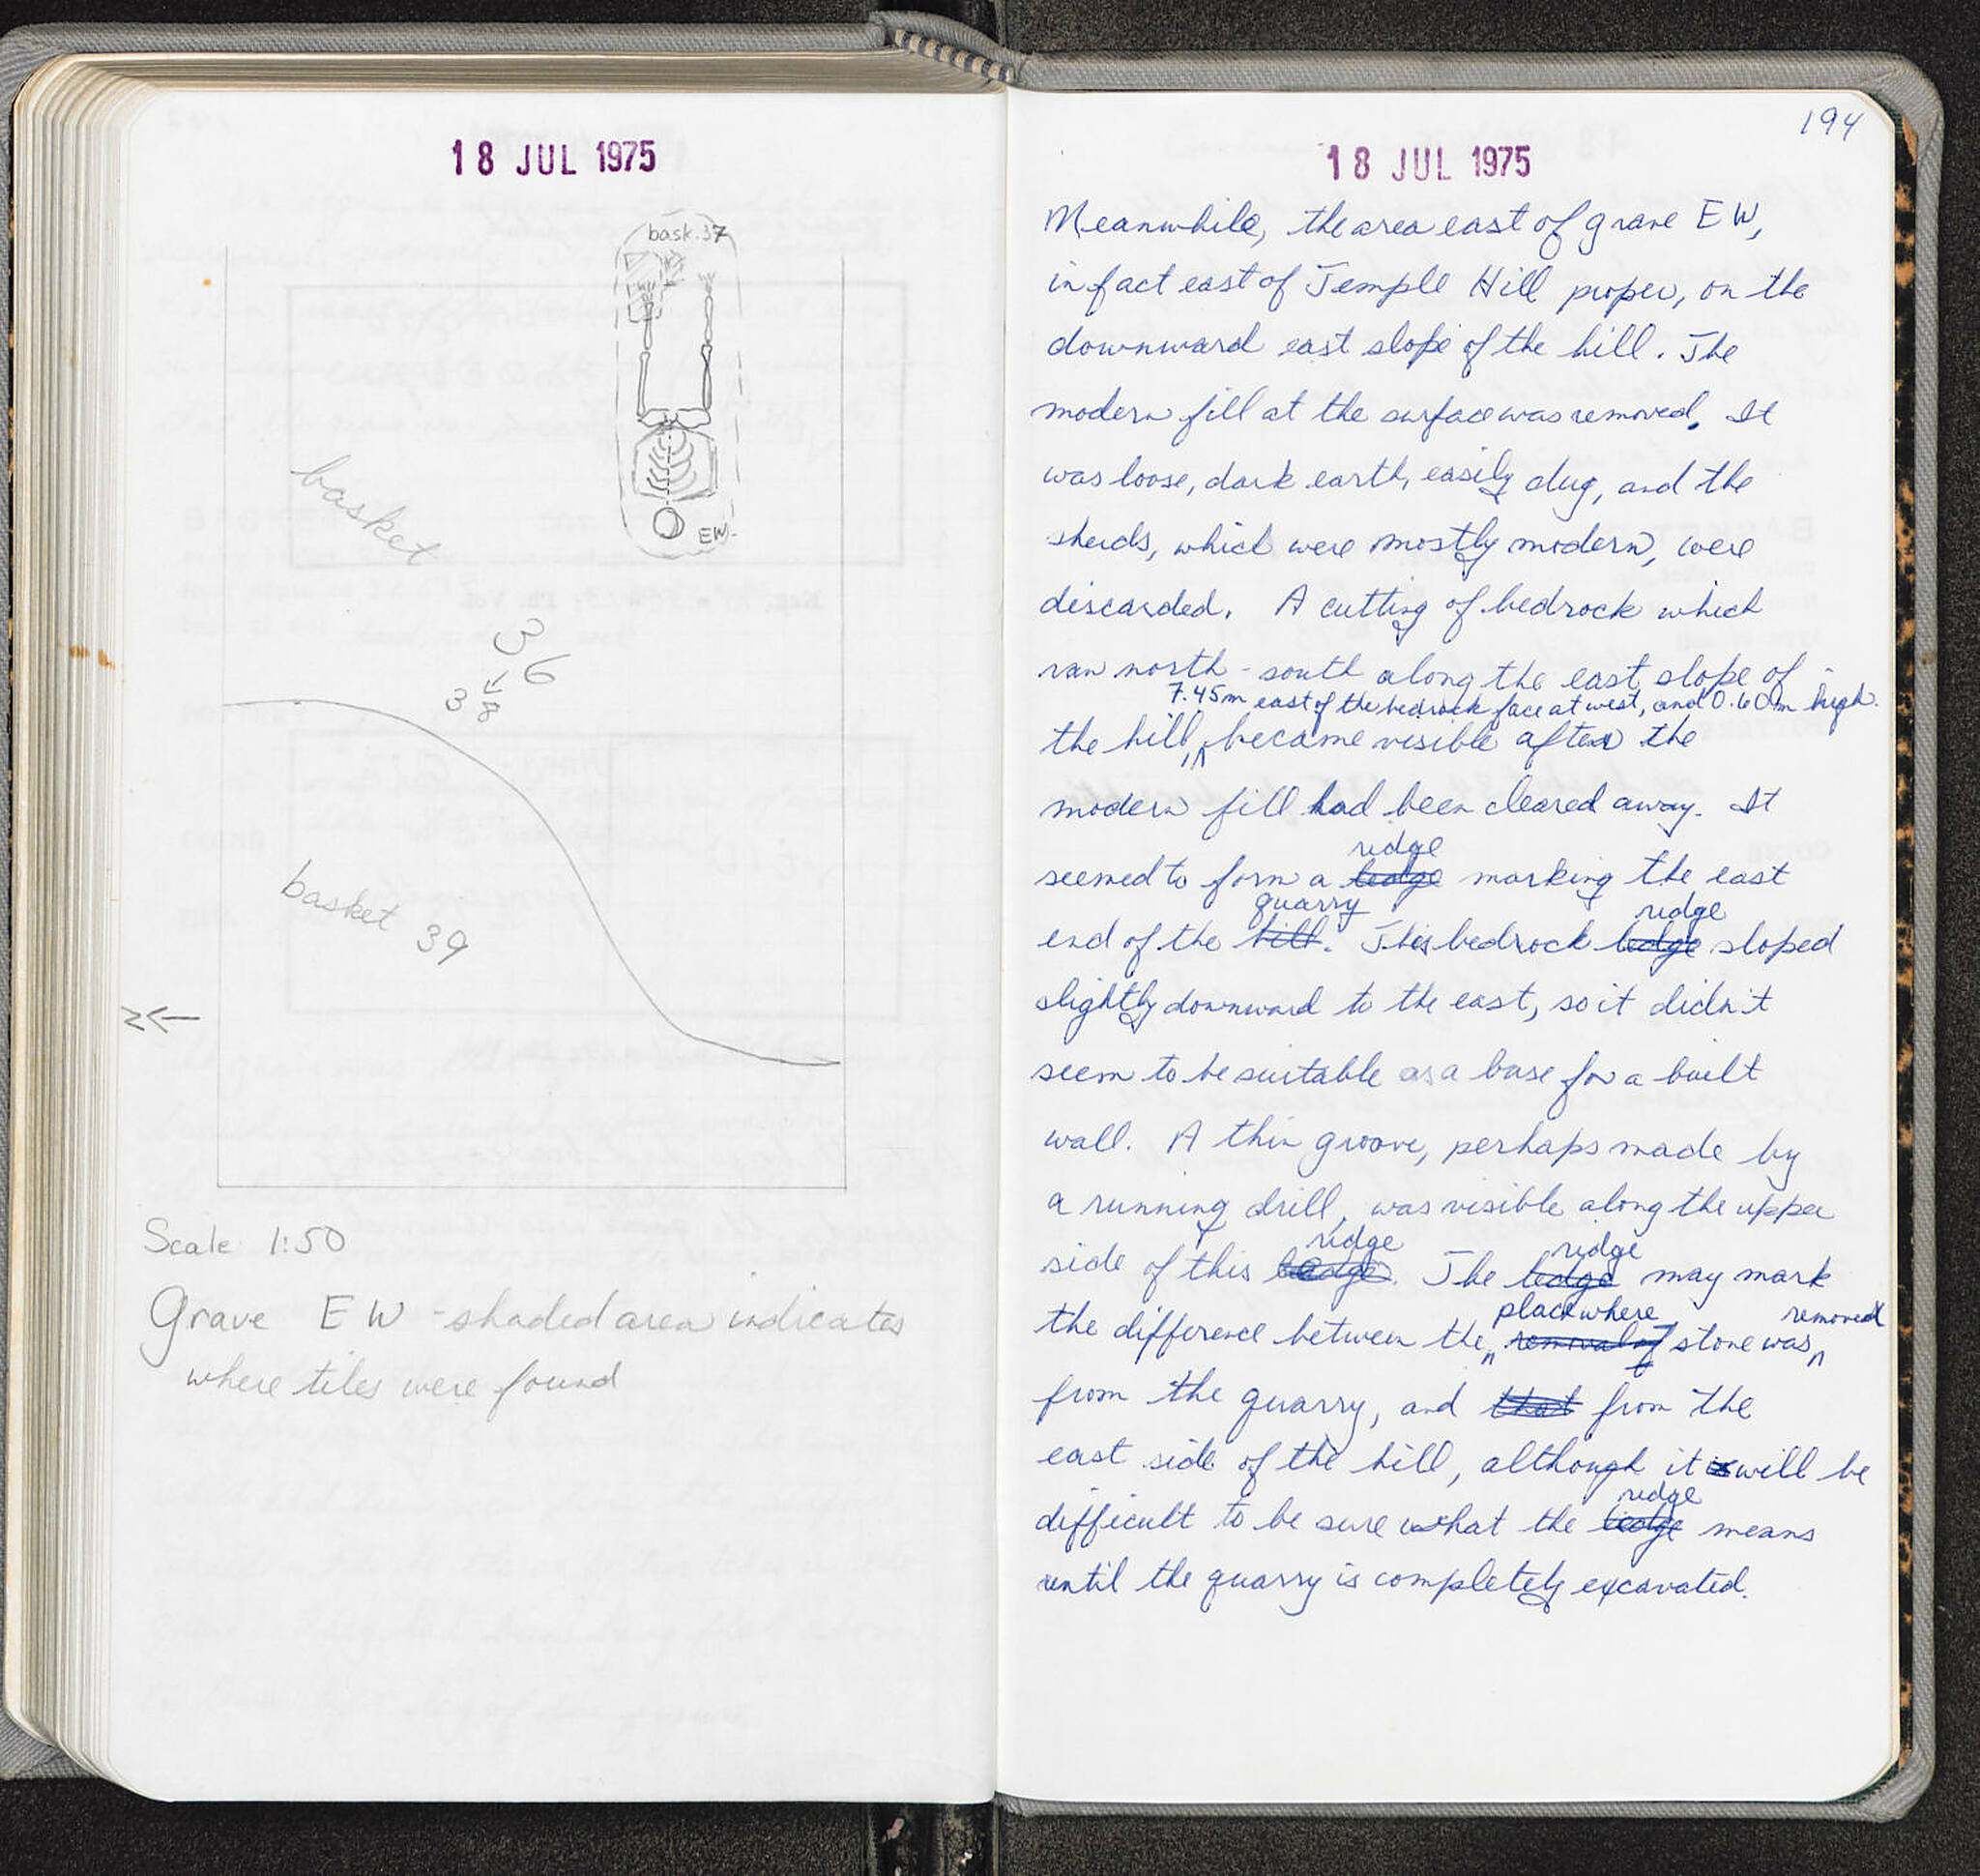 18 JUL 1975
bask. 37
EW
basket
36
38
basket 39
N
Scale 1:50
Grave EW - shaded area indicates
where tiles were found
194
18 JUL 1975
Meanwhile, the area east of grave EW,
in fact east of Temple Hill proper, on the
downward east slope of the hill. The
modern fill at the surface was removed. It
was loose, dark earth, easily dug, and the
sherds, which were mostly modern, were
discarded. A cutting of bedrock which
ran north-south along the east slope of
7.45m east of the bedrock face at west, and 0.60m high.
the hill, became visible after the
modern fill had been cleared away. It
ridge
seemed to form a ledge marking the east
quarry ridge
end of the hill. This bedrock ledge sloped
slightly downward to the east, so it didn't
seem to be suitable as a base for a built
wall. A thin groove, perhaps made by
a running drill, was visible along the upper
ridge ridge
side of this ledge. The ledge may mark
place where removed
the difference between the removal of stone was
from the quarry, and that from the
east side of the hill, although it is will be
ridge
difficult to be sure what the ledge means
until the quarry is completely excavated.